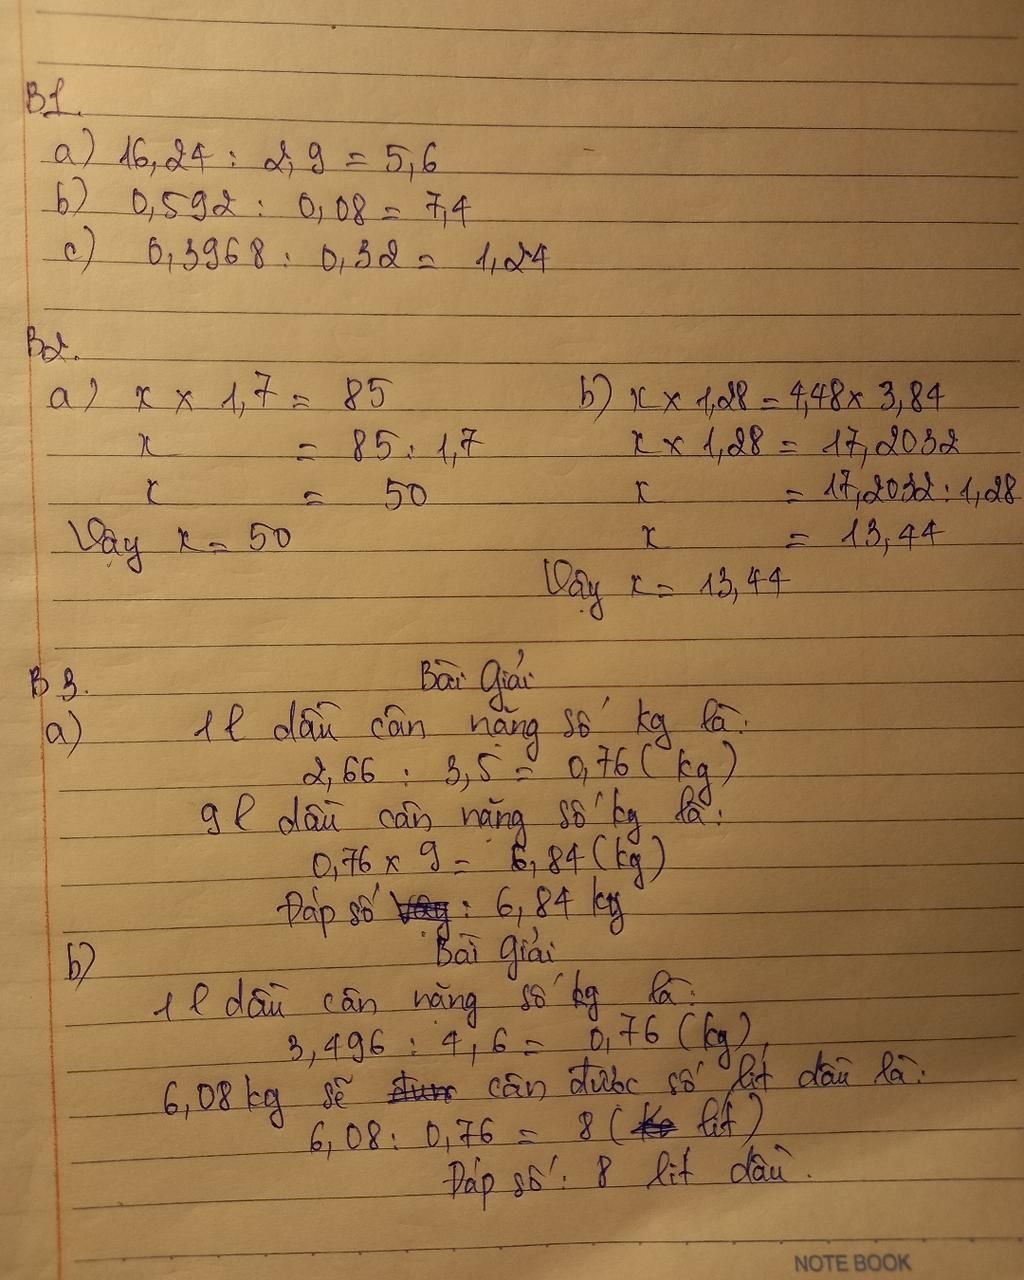 B1.
a) 16,24 : 2,9 = 5,6
b) 0,592 : 0,08 = 7,4
c) 0,3968 : 0,32 = 1,24
B2.
a) x × 1,7 = 85
x = 85 : 1,7
x = 50
Vậy x = 50
b) x × 1,28 = 4,48 × 3,84
x × 1,28 = 17,2032
x = 17,2032 : 1,28
x = 13,44
Vậy x = 13,44
B3.
Bài Giải
a) 1 l dầu cân nặng số kg là:
2,66 : 3,5 = 0,76 (kg)
9 l dầu cân nặng số kg là:
0,76 × 9 = 6,84 (kg)
Đáp số : 6,84 kg
b) Bài giải
1 l dầu cân nặng số kg là:
3,496 : 4,6 = 0,76 (kg)
6,08 kg sẽ cân được số lít dầu là:
6,08 : 0,76 = 8 (lít)
Đáp số : 8 lít dầu.
NOTE BOOK